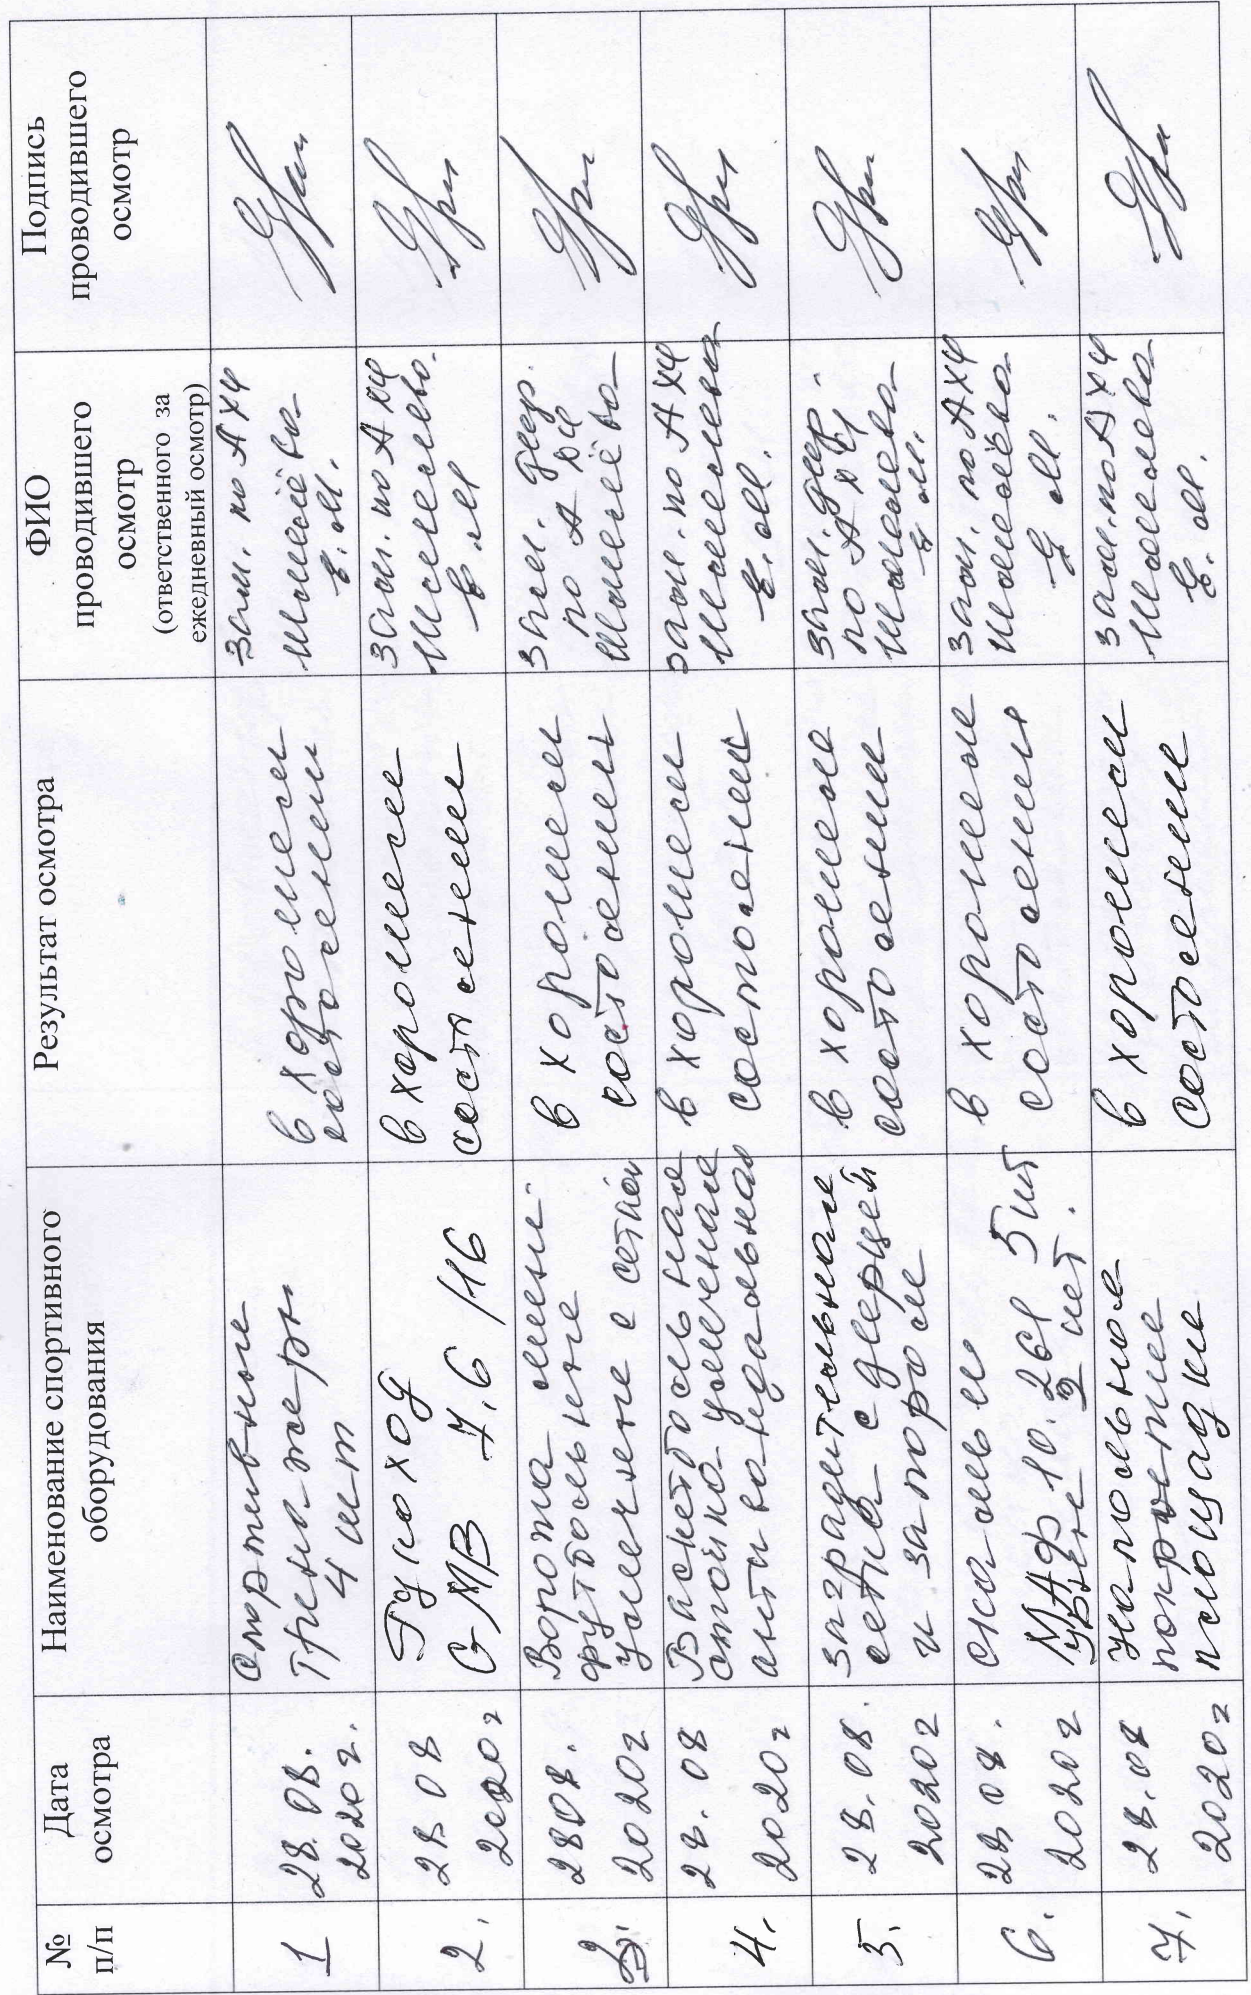 №
п/п
Дата
осмотра
Наименование спортивного
оборудования
Результат осмотра
ФИО
проводившего
осмотр
(ответственного за
ежедневный осмотр)
Подпись
проводившего
осмотр
1
28.08.
2020г.
Спортивные
тренажеры
4 шт
в хорошем
состоении
зам. по АХЧ
2.
28 08
2020г
Рукоход
СМВ 7.6/16
в хорошем
состоении
зам. по АХЧ
3.
2808.
2020г
Ворота мини
футбольные
усеченые с сеткой
в хорошем
состоении
зам. дир.
по АХЧ
4.
28.08
2020г
Баскетбольная
стойка усеченая
антивандальная
в хорошем
состоении
зам. по АХЧ
Е.М.
5.
28.08.
2020г
заградительная
сетка с дверцей
и запором
в хорошем
состоении
зам. дир.
по АХЧ
6.
28 08.
2020г
скамьи
МАФ 10. 5шт
в хорошем
состоении
зам. по АХЧ
7.
28.08
2020г
напольное
покрытие
площадки
в хорошем
состоении
зам. по АХЧ
Е.М.